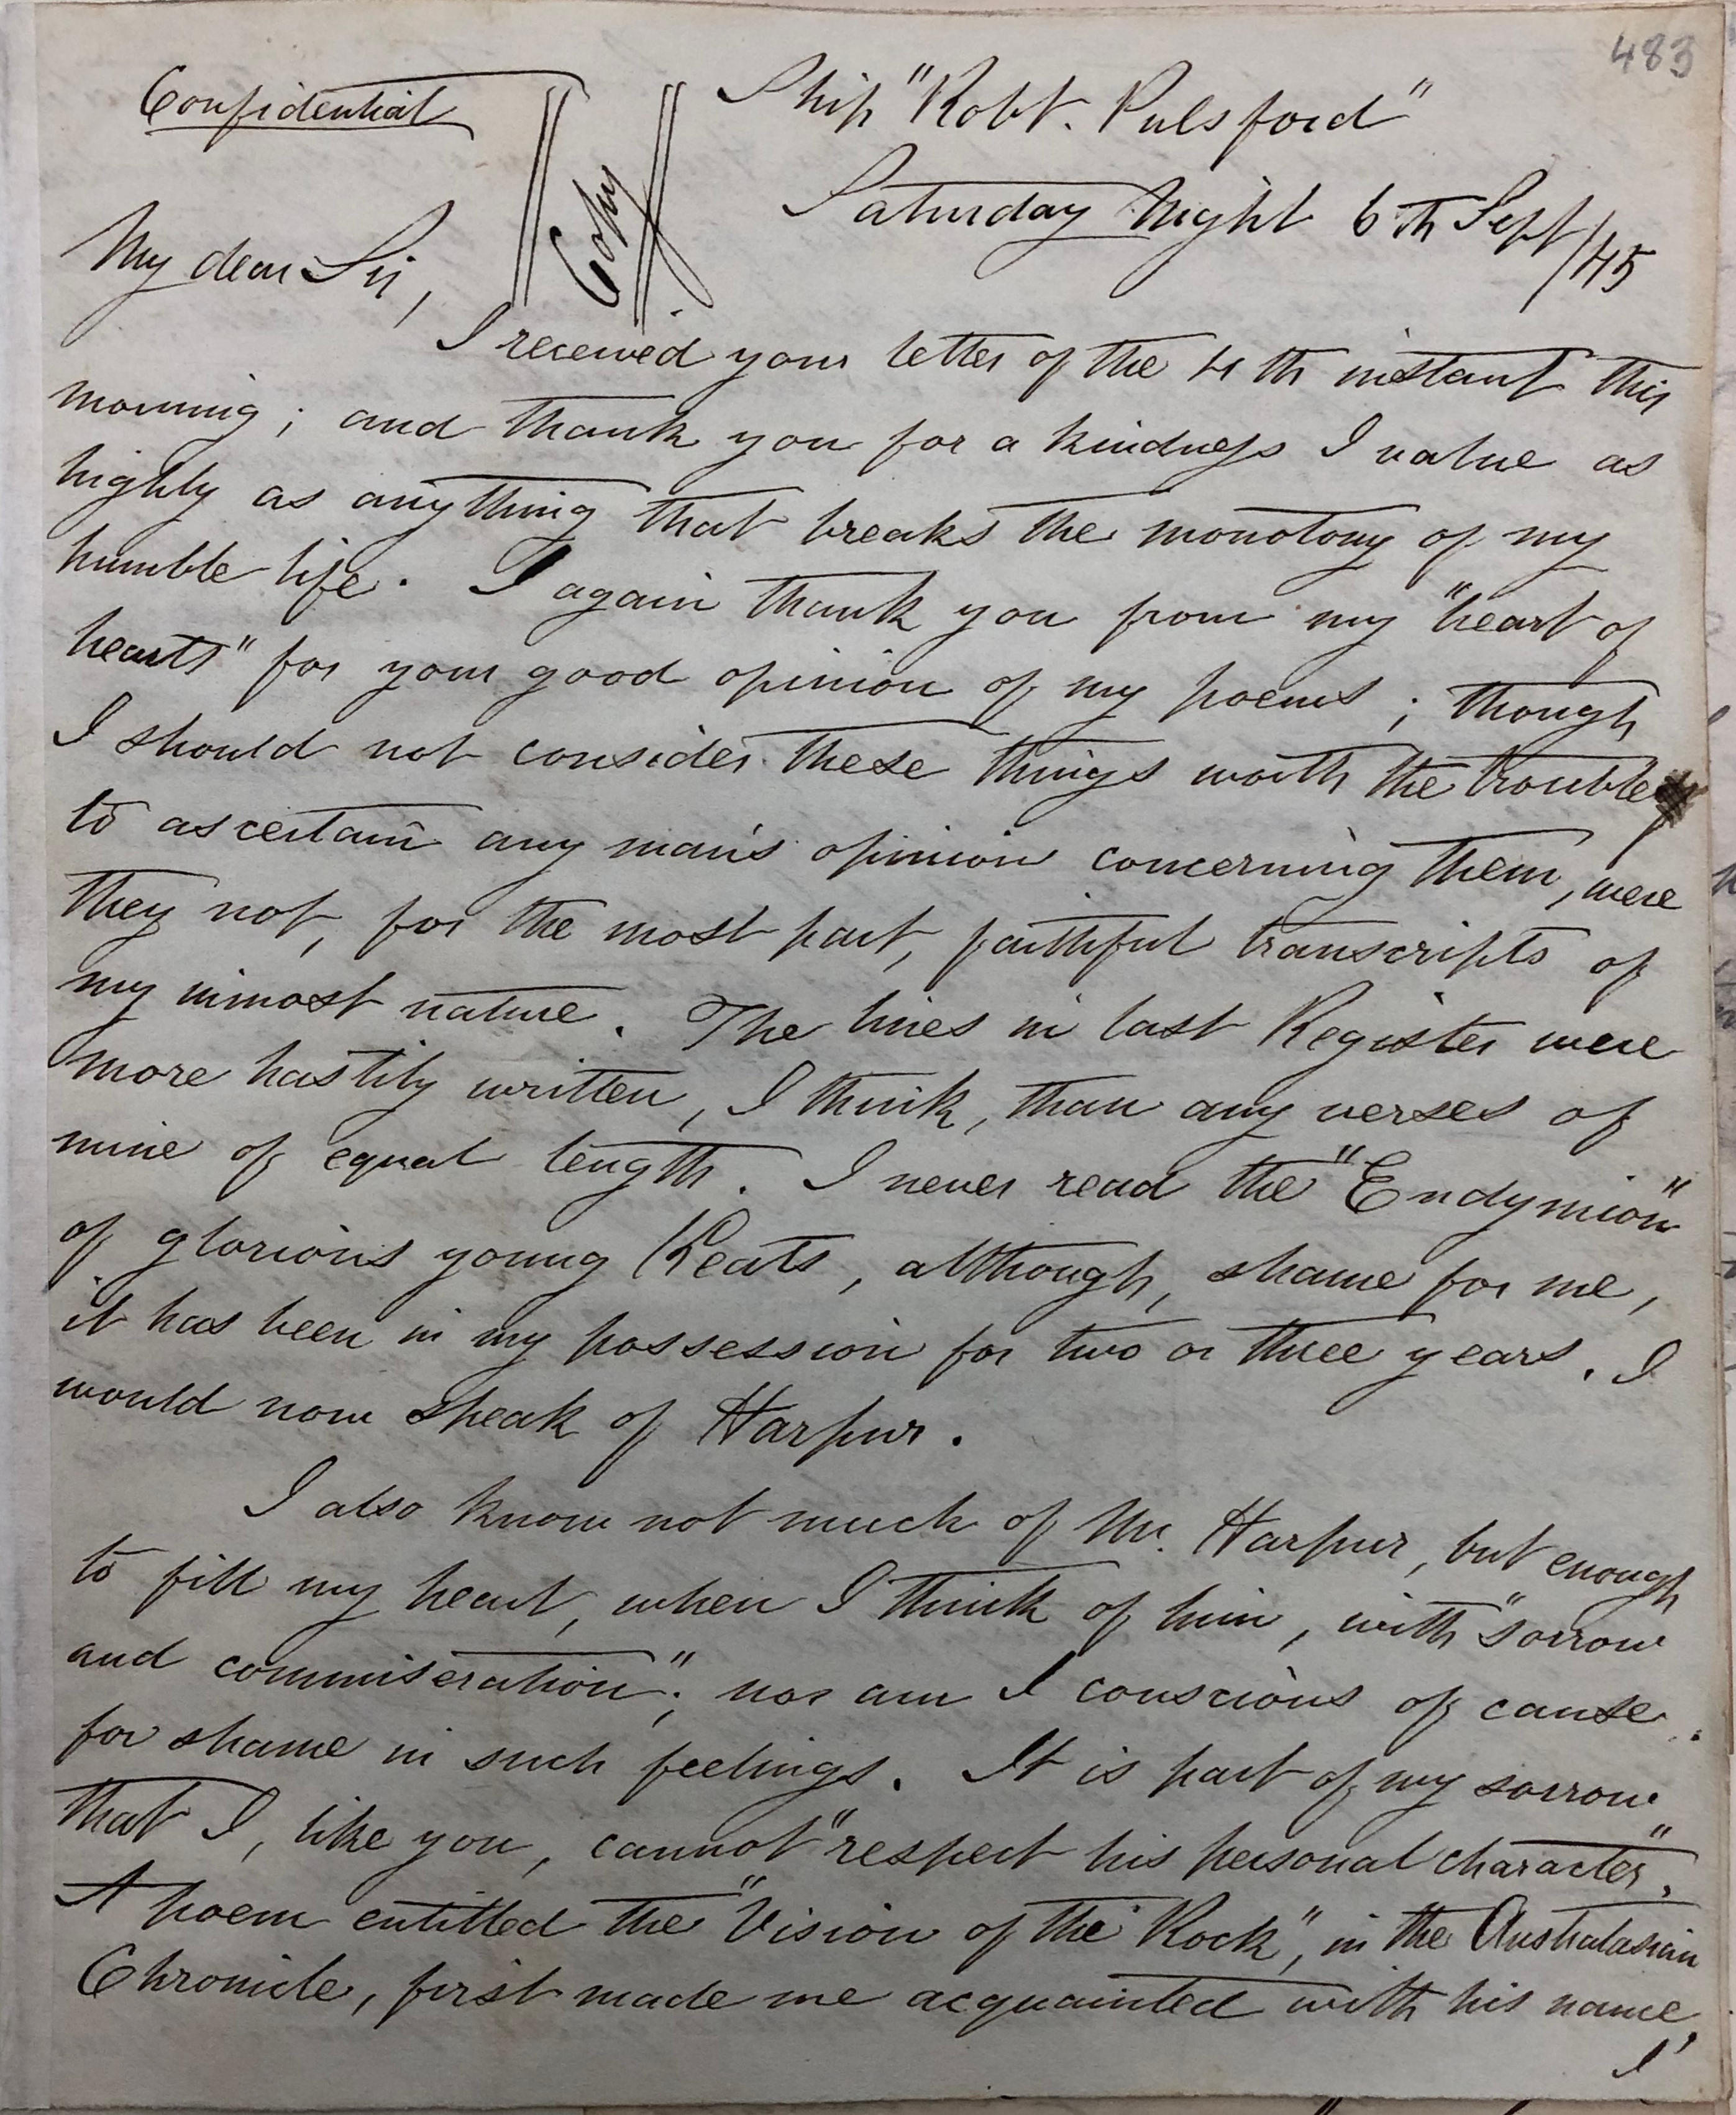 483
Confidential
Copy
Ship "Robt. Pulsford"
Saturday Night 6th Sept/45
My dear Sir,
I received your letter of the 4th instant this
morning; and thank you for a kindness I value as
highly as anything that breaks the monotony of my
humble life. I again thank you from my "heart of
hearts" for your good opinion of my poems; though
I should not consider these things worth the trouble
to ascertain any man's opinion concerning them, were
they not, for the most part, faithful transcripts of
my inmost nature. The lines in last Register were
more hastily written, I think, than any verses of
mine of equal length. I never read the "Endymion"
of glorious young Keats, although, shame for me,
it has been in my possession for two or three years. I
would now speak of Harpur.
I also know not much of Mr. Harpur, but enough
to fill my heart, when I think of him, with "sorrow
and commiseration"; nor am I conscious of cause
for shame in such feelings. It is part of my sorrow
that I, like you, cannot "respect his personal character".
A poem entitled the "Vision of the Rock", in the Australasian
Chronicle, first made me acquainted with his name,
I